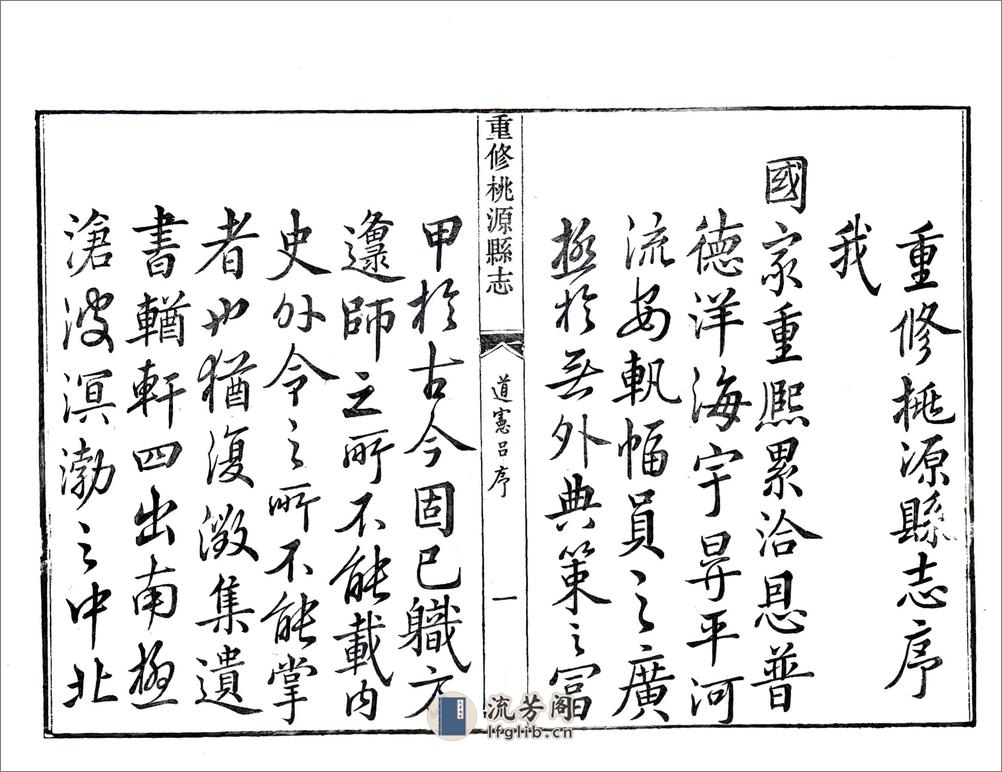 重修桃源縣志序
我
國家重熙累洽恩普
德洋海宇昇平河
流安軌幅員之廣
極於無外典策之富
重修桃源縣志
道憲呂序
一
甲於古今固已職方
邍師之所不能載內
史外令之所不能掌
者也猶復徵集遺
書輶軒四出南極
滄波溟渤之中北
流芳阁
lfglib.cn